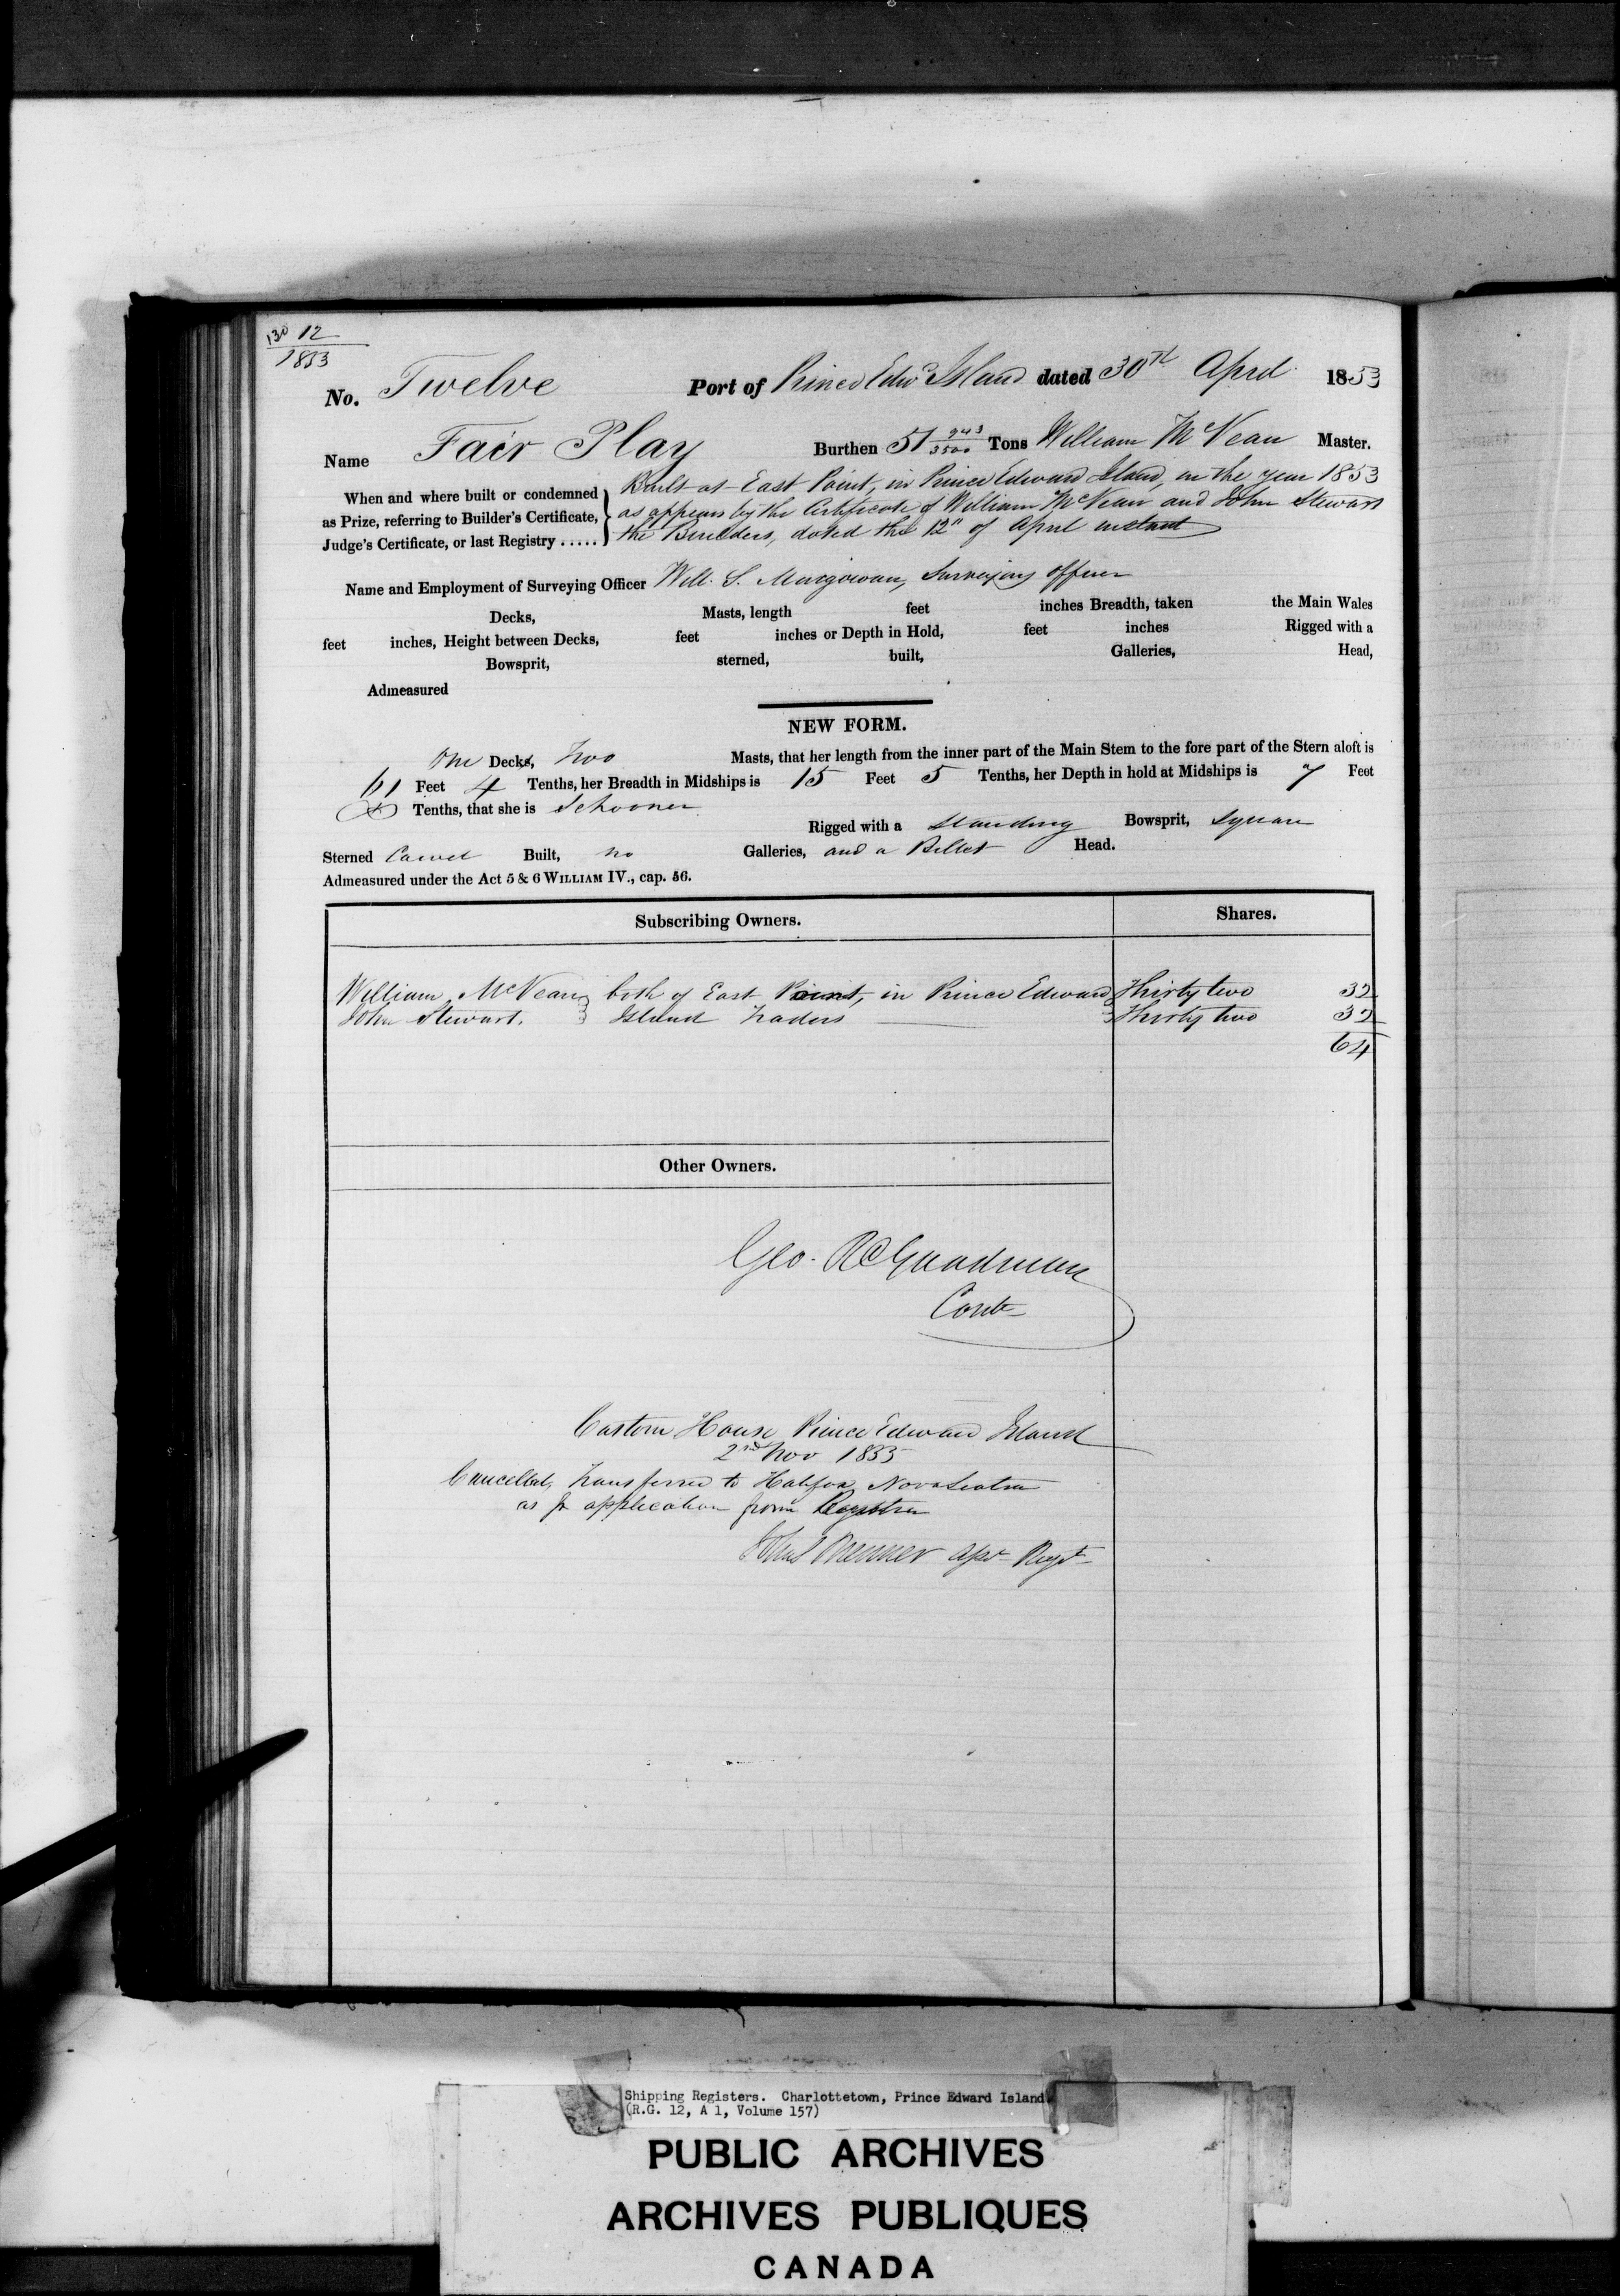 130 12
1853
No. Twelve Port of Prince Edwd Island dated 30th April 1853
Name Fair Play Burthen 51 943/3500 Tons William McVean Master.
When and where built or condemned as Prize, referring to Builder's Certificate, Judge's Certificate, or last Registry .....
Built at East Point, in Prince Edward Island, in the year 1853
as appears by the Certificate of William McVean and John Stewart
the Builders, dated the 12" of April instant
Name and Employment of Surveying Officer Will. S. Surveying officer
Decks, Masts, length feet inches Breadth, taken the Main Wales
feet inches, Height between Decks, feet inches or Depth in Hold, feet inches Rigged with a
Bowsprit, sterned, built, Galleries, Head,
Admeasured
NEW FORM.
One Decks, Two Masts, that her length from the inner part of the Main Stem to the fore part of the Stern aloft is
61 Feet 4 Tenths, her Breadth in Midships is 15 Feet 5 Tenths, her Depth in hold at Midships is 7 Feet
Tenths, that she is Schooner Rigged with a Standing Bowsprit, square
Sterned Carvel Built, no Galleries, and a Billet Head.
Admeasured under the Act 5 & 6 WILLIAM IV., cap. 56.
Subscribing Owners. Shares.
William McVean both of East Point, in Prince Edward Thirty two 32
John Stewart. Island Traders Thirty two 32
64
Other Owners.
Geo. R Goodman
Contr
Custom House Prince Edward Island
2nd Nov 1855
Cancelled, Transferred to Halifax Nova Scotia
as pr application from Registrar
Regr
Shipping Registers. Charlottetown, Prince Edward Island
(R.G. 12, A 1, Volume 157)
PUBLIC ARCHIVES
ARCHIVES PUBLIQUES
CANADA